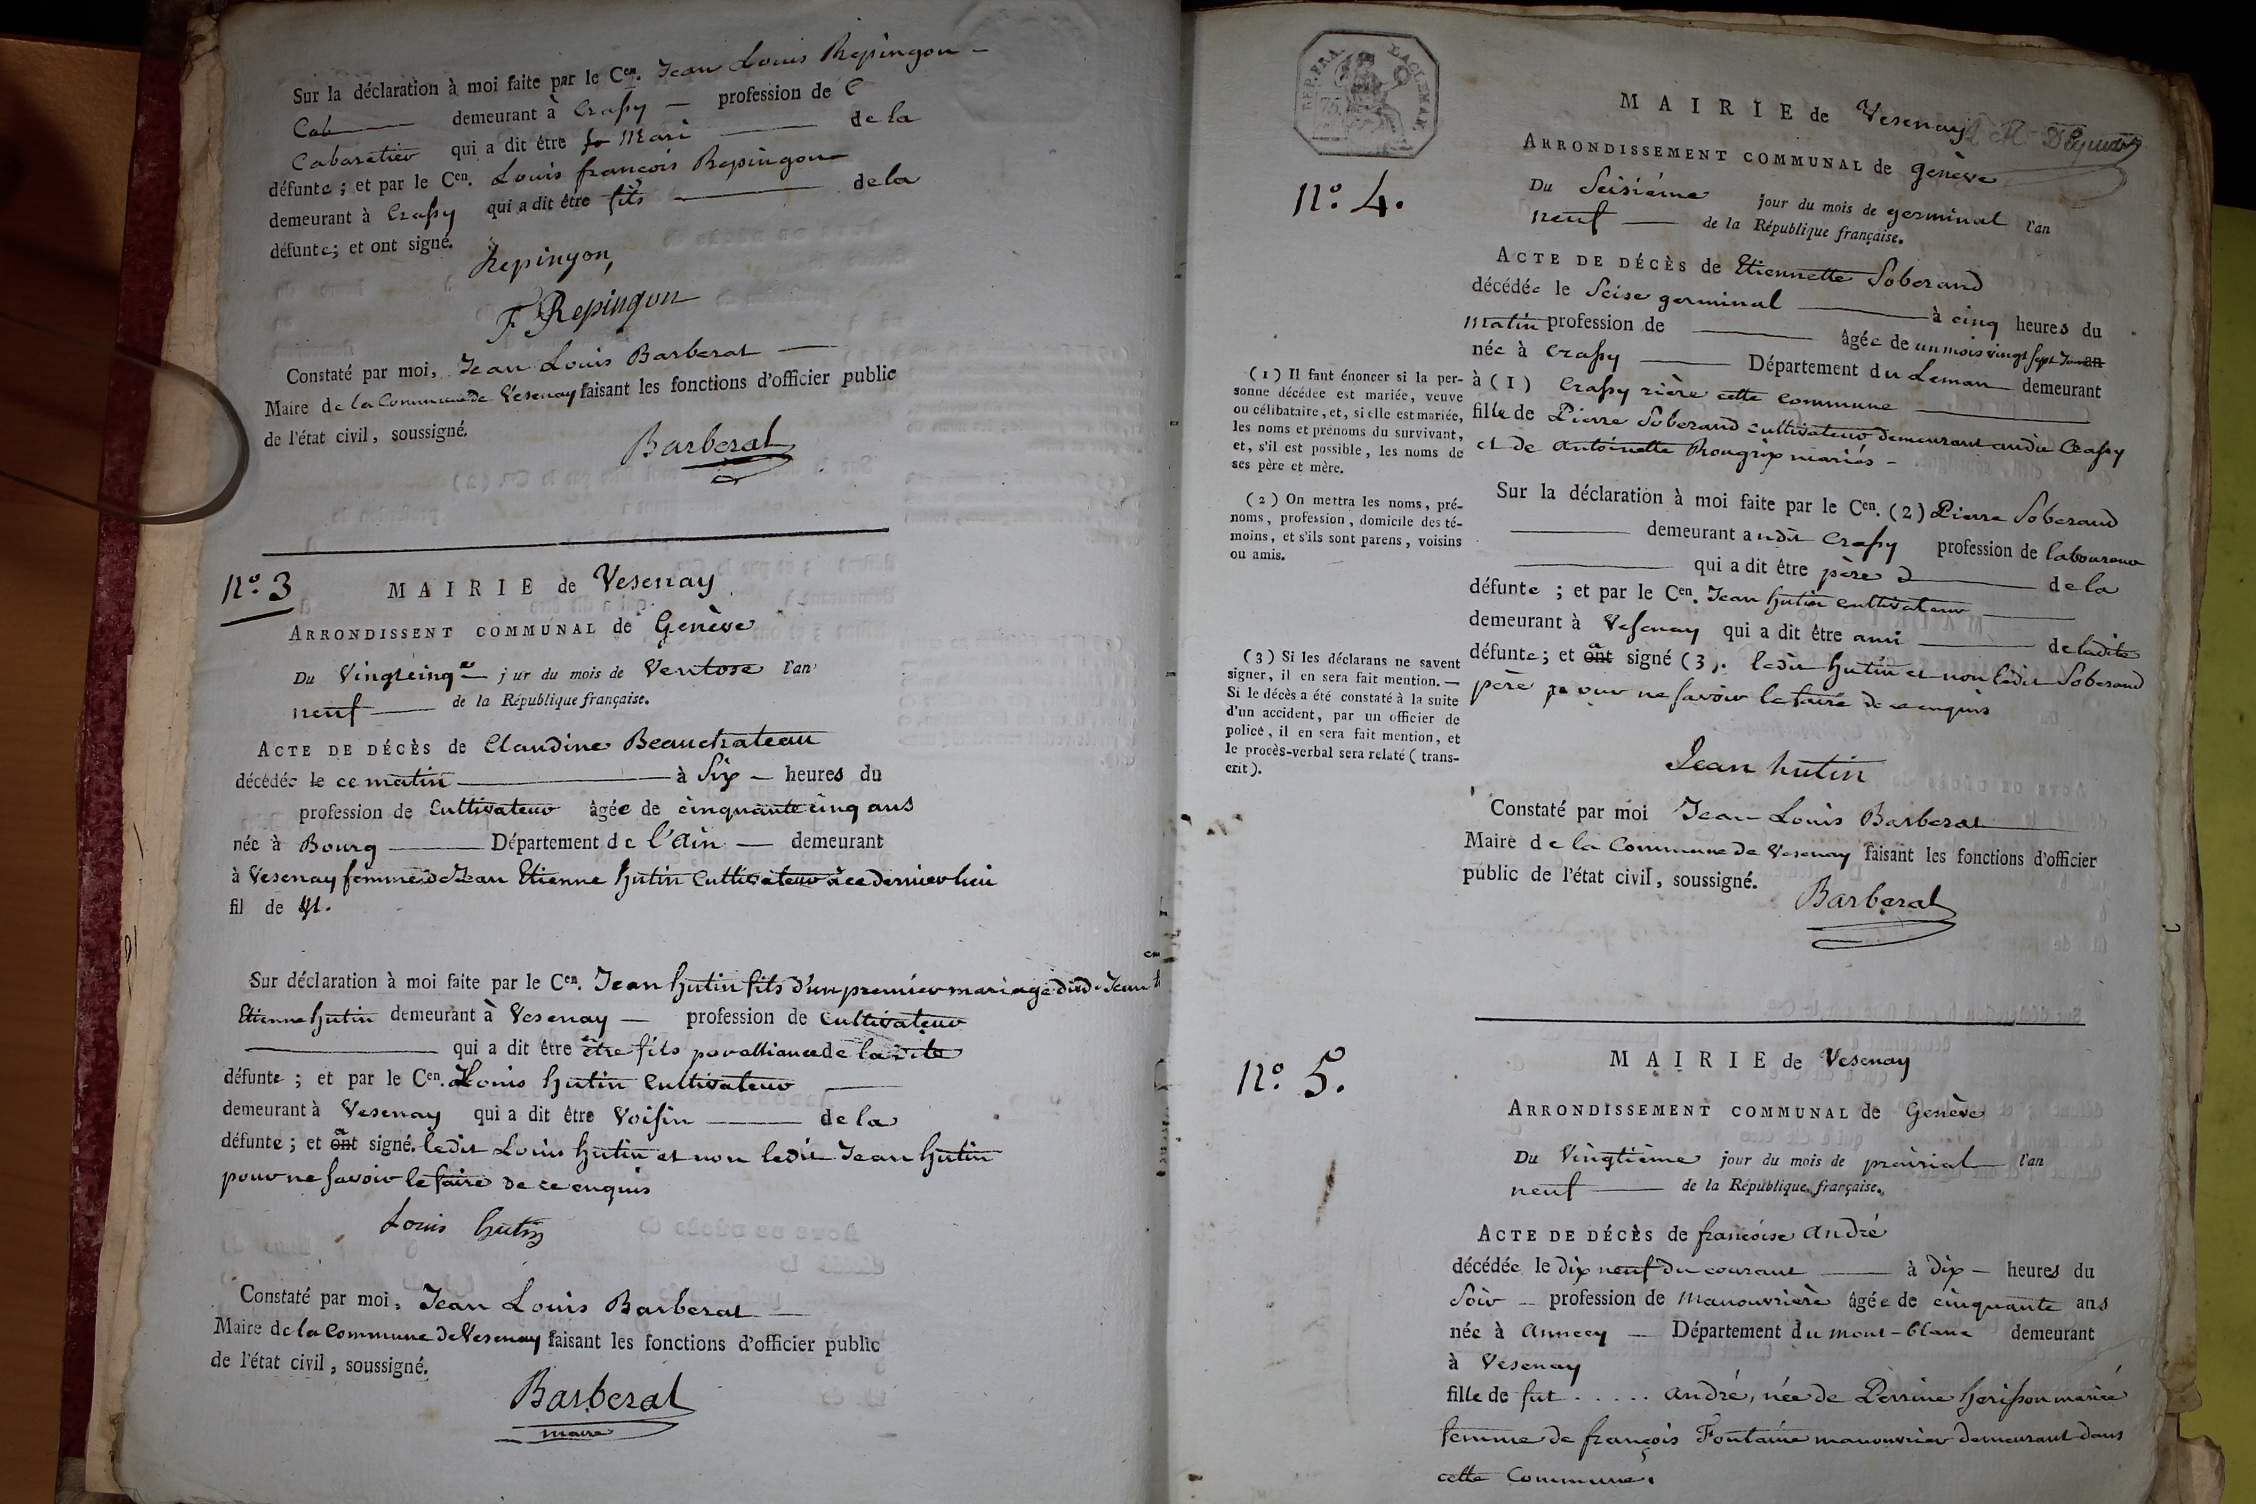 Sur la déclaration à moi faite par le Cen. Jean Louis Repingon
Cab demeurant à Crassy profession de C
Cabaretier qui a dit être Mari de la
défunte ; et par le Cen. Louis francois Repingon
demeurant à Crassy qui a dit être fils de la
défunte ; et ont signé.
Repingon,
F. Repingon
Constaté par moi, Jean Louis Barberat
Maire de la Commune de Vesenay faisant les fonctions d'officier public
de l'état civil, soussigné.
Barberat
n°. 3
MAIRIE de Vesenay
ARRONDISSENT COMMUNAL de Genève
Du Vingtcinqe j ur du mois de Ventose l'an
neuf de la République française.
ACTE DE DÉCÈS de Claudine Beauchateau
décédée le ce matin à Six heures du
profession de Cultivateur âgée de cinquante cinq ans
née à Bourg Département de l'Ain demeurant
à Vesenay femme de Jean Etienne hutin Cultivateur à ce dernier lieu
fil de
Sur déclaration à moi faite par le Cen. Jean hutin fils d'un premier mariage dud. Jean
Etienne hutin demeurant à Vesenay profession de Cultivateur
qui a dit être être fils par alliance de la dite
défunte ; et par le Cen. Louis hutin Cultivateur
demeurant à Vesenay qui a dit être Voisin de la
défunte ; et ont a signé. ledit Louis hutin et non ledit Jean hutin
pour ne savoir le faire de ce enquis
Louis hutin
Constaté par moi, Jean Louis Barberat
Maire de la Commune de Vesenay faisant les fonctions d'officier public
de l'état civil, soussigné.
Barberat
maire
REP. FRA.
75
MAIRIE de Vesenay
ARRONDISSEMENT COMMUNAL de genève
n°. 4.
Du Seisième jour du mois de germinal l'an
neuf de la République française.
ACTE DE DÉCÈS de Etiennette Soberand
décédée le Seise germinal à cinq heures du
matin profession de âgée de un mois vingt sept Jours
née à Crassy Département du Leman demeurant
à (1) Crassy rière cette commune
fille de Pierre Soberand cultivateur demeurant audit Crassy
et de antoinette mariés
(1) Il faut énoncer si la per-
sonne décédée est mariée, veuve
ou célibataire, et, si elle est mariée,
les noms et prénoms du survivant,
et, s'il est possible, les noms de
ses père et mère.
(2) On mettra les noms, pré-
noms, profession, domicile des té-
moins, et s'ils sont parens, voisins
ou amis.
(3) Si les déclarans ne savent
signer, il en sera fait mention. —
Si le décès a été constaté à la suite
d'un accident, par un officier de
police, il en sera fait mention, et
le procès-verbal sera relaté ( trans-
crit ).
Sur la déclaration à moi faite par le Cen. (2) Pierre Soberand
demeurant audit Crassy profession de laboureur
qui a dit être père de la
défunte ; et par le Cen. Jean hutin cultivateur
demeurant à Vesenay qui a dit être ami de ladite
défunte ; et ont a signé (3). ledit hutin et non ledit Soberand
père pour ne savoir le faire de ce enquis
Jean hutin
Constaté par moi Jean Louis Barberat
Maire de la Commune de Vesenay faisant les fonctions d'officier
public de l'état civil, soussigné.
Barberat
n°. 5.
MAIRIE de Vesenay
ARRONDISSEMENT COMMUNAL de Genève
Du Vingtième jour du mois de prairial l'an
neuf de la République française.
ACTE DE DÉCÈS de francoise andré
décédée le dix neuf du courant à dix heures du
Soir profession de Manouvrière âgée de cinquante ans
née à annecy Département du mont-blanc demeurant
à Vesenay
fille de fut . . . . . andré, née de Perrine herisson mariée
femme de françois Fontaine manouvrier demeurant dans
cette Commune.